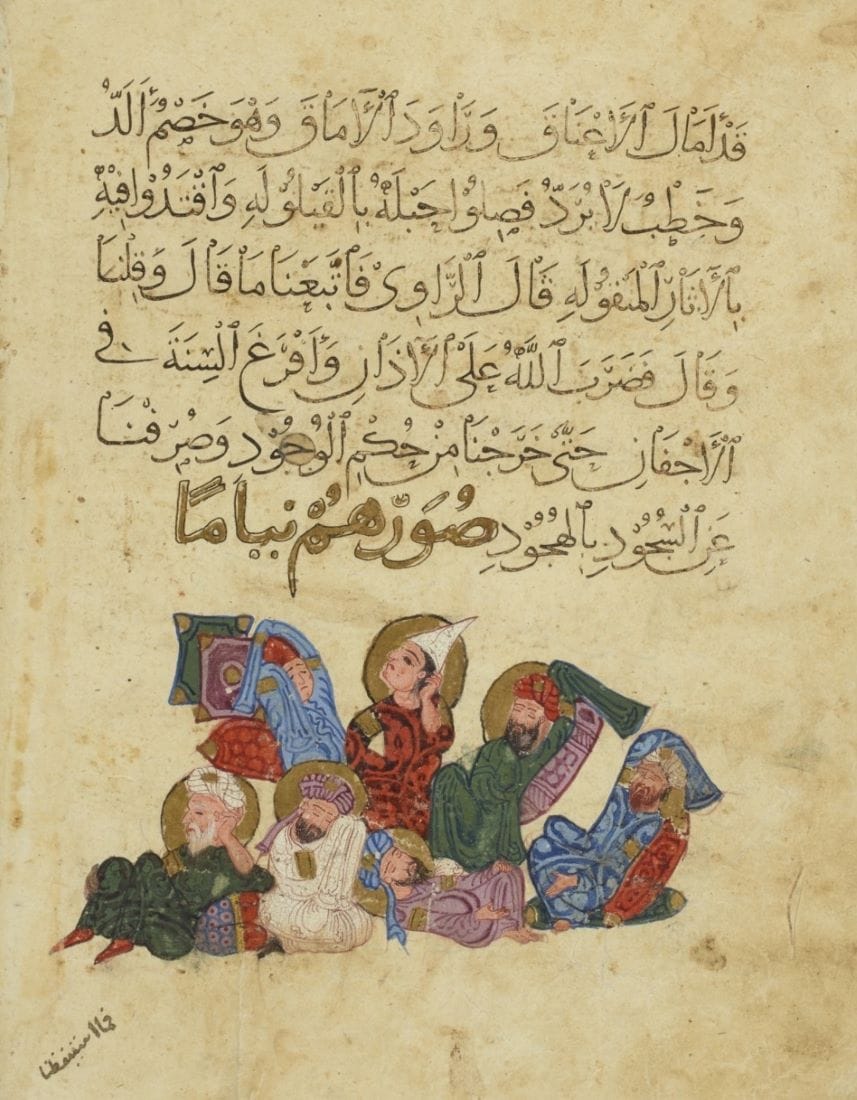 قَدْ أَمَالَ ٱلْأَعْنَاقَ وَرَاوَدَ ٱلْأَمَاقَ وَهْوَ خَصْمٌ أَلَدُّ
وَخَطْبٌ لَا يُرَدُّ فَصِلُوا حَبْلَهُ بِٱلْقَيْلُولَهِ وَٱقْتَدُوا فِيهِ
بِٱلْآثَارِ ٱلْمَنْقُولَهِ قَالَ ٱلرَّاوِي فَاتَّبَعْنَا مَا قَالَ وَقِلْنَا
وَقَالَ فَضَرَبَ ٱللَّهُ عَلَى ٱلْآذَانِ وَأَفْرَغَ ٱلسِّنَةَ فِي
ٱلْأَجْفَانِ حَتَّى خَرَجْنَا مِنْ حُكْمِ ٱلْوُجُودِ وَصُرِفْنَا
عَنِ ٱلسُّجُودِ بِٱلْهُجُودِ صُوَرُهُمْ نِيَامًا
فما استيقظنا